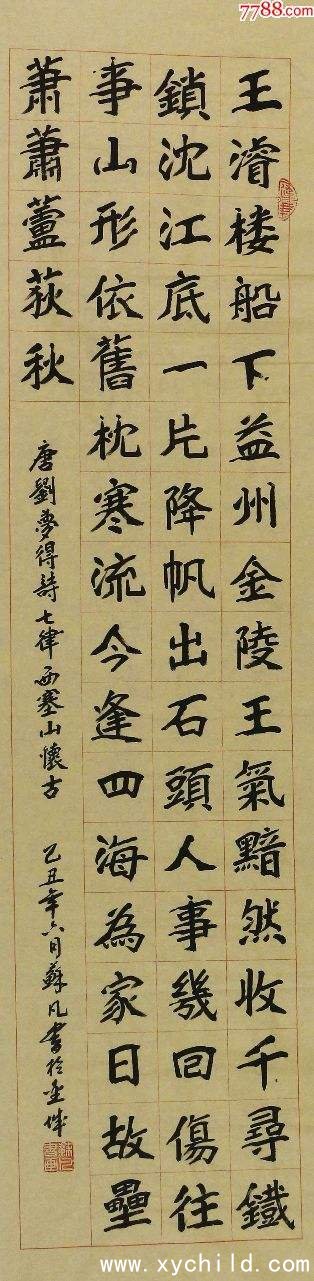 7788.com
王濬楼船下益州金陵王氣黯然收千尋鐵
鎖沈江底一片降帆出石頭人事幾回傷往
事山形依舊枕寒流今逢四海為家日故壘
蕭蕭蘆荻秋
唐劉夢得詩七律西塞山懷古 乙丑年六月蘇凡書於
www.xychild.com